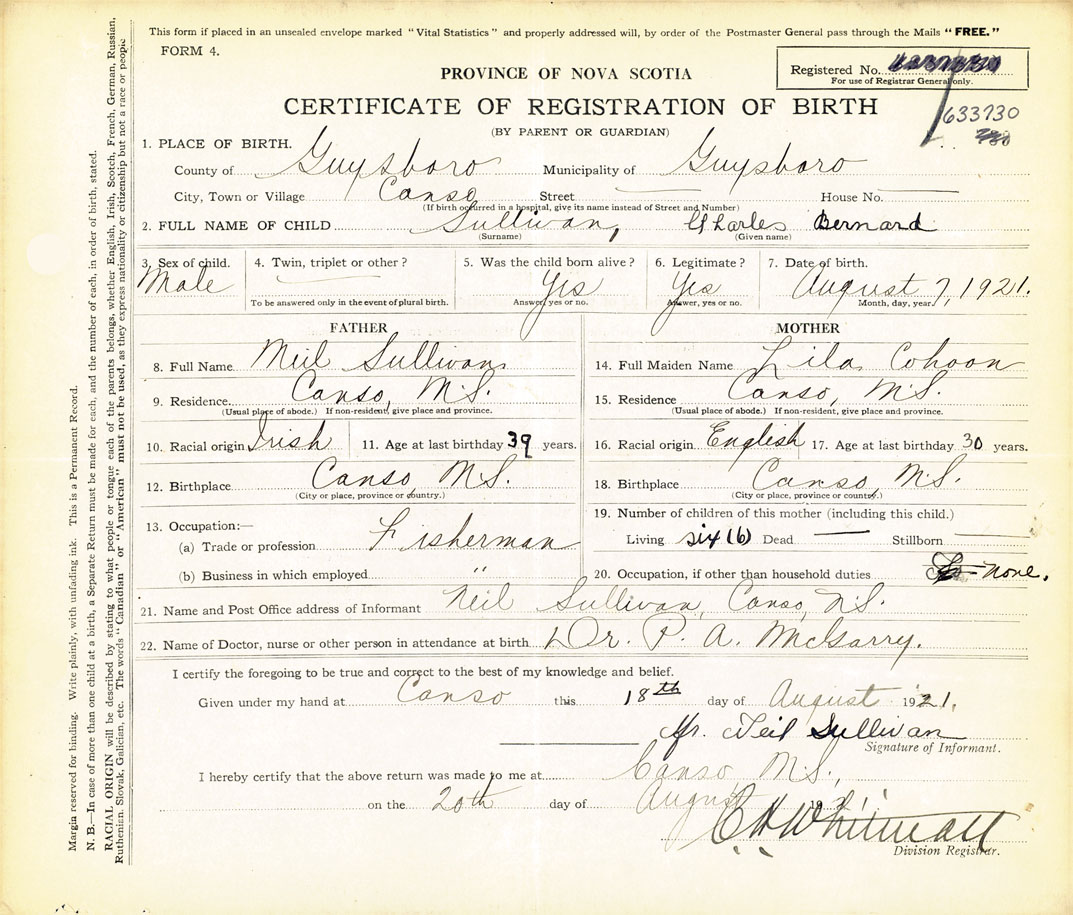 This form if placed in an unsealed envelope marked "Vital Statistics" and properly addressed will, by order of the Postmaster General pass through the Mails "FREE."
FORM 4.
PROVINCE OF NOVA SCOTIA
Registered No.
For use of Registrar General only.
CERTIFICATE OF REGISTRATION OF BIRTH
633730
(BY PARENT OR GUARDIAN)
1. PLACE OF BIRTH.
County of Guysboro Municipality of Guysboro
City, Town or Village Canso Street House No.
(If birth occurred in a hospital, give its name instead of Street and Number)
2. FULL NAME OF CHILD Sullivan, Charles Bernard
(Surname) (Given name)
3. Sex of child. 4. Twin, triplet or other? 5. Was the child born alive? 6. Legitimate? 7. Date of birth.
Male Yes Yes August 7, 1921.
To be answered only in the event of plural birth. Answer, yes or no. Answer, yes or no. Month, day, year.
FATHER MOTHER
8. Full Name Neil Sullivan 14. Full Maiden Name Lila Cohoon
9. Residence Canso, N.S. 15. Residence Canso, N.S.
(Usual place of abode.) If non-resident, give place and province. (Usual place of abode.) If non-resident, give place and province.
10. Racial origin Irish 11. Age at last birthday 39 years. 16. Racial origin English 17. Age at last birthday 30 years.
12. Birthplace Canso N.S. 18. Birthplace Canso, N.S.
(City or place, province or country.) (City or place, province or country.)
13. Occupation:— 19. Number of children of this mother (including this child.)
(a) Trade or profession Fisherman Living six (6) Dead — Stillborn
(b) Business in which employed " 20. Occupation, if other than household duties none.
21. Name and Post Office address of Informant Neil Sullivan, Canso, N.S.
22. Name of Doctor, nurse or other person in attendance at birth Dr. P. A. McGarry.
I certify the foregoing to be true and correct to the best of my knowledge and belief.
Given under my hand at Canso this 18th day of August 1921.
Mr. Neil Sullivan
Signature of Informant.
I hereby certify that the above return was made to me at Canso N.S.,
on the 20th day of August 1921
C H Whitman
Division Registrar.
Margin reserved for binding. Write plainly, with unfading ink. This is a Permanent Record.
N. B.—In case of more than one child at a birth, a Separate Return must be made for each, and the number of each, in order of birth, stated.
RACIAL ORIGIN will be described by stating to what people or tongue each of the parents belongs, whether English, Irish, Scotch, French, German, Russian,
Ruthenian, Slovak, Galician, etc. The words "Canadian" or "American" must not be used, as they express nationality or citizenship but not a race or people